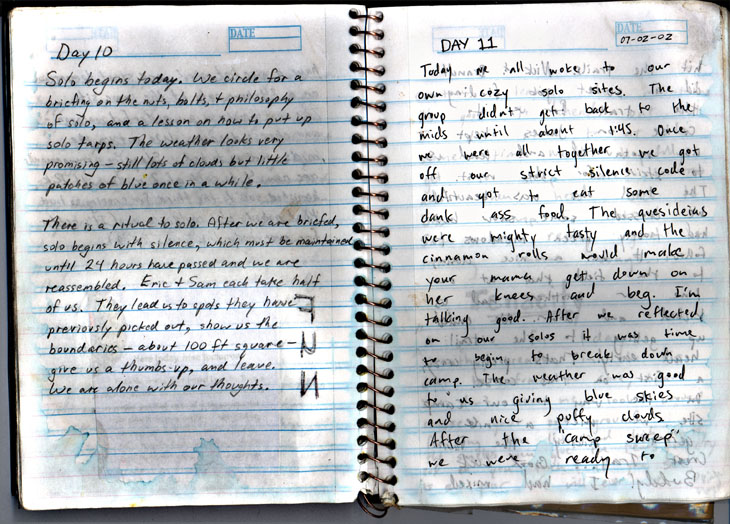 DATE
Day 10
Solo begins today. We circle for a
briefing on the nuts, bolts, + philosophy
of solo, and a lesson on how to put up
solo tarps. The weather looks very
promising - still lots of clouds but little
patches of blue once in a while.
There is a ritual to solo. After we are briefed,
solo begins with silence, which must be maintained
until 24 hours have passed and we are
reassembled. Eric + Sam each take half
of us. They lead us to spots they have
previously picked out, show us the
boundaries - about 100 ft square -
give us a thumbs-up, and leave.
We are alone with our thoughts.
DATE
DAY 11
07-02-02
Today we all woke to our
own cozy solo sites. The
group didn't get back to the
mids until about 1:45. Once
we were all together we got
off our strict silence code
and got to eat some
dank ass food. The quesideias
were mighty tasty and the
cinnamon rolls would make
your mama get down on
her knees and beg. I'm
talking good. After we reflected
on our solos it was time
to begin to break down
camp. The weather was good
to us giving blue skies
and nice puffy clouds.
After the "camp sweep"
we were ready to